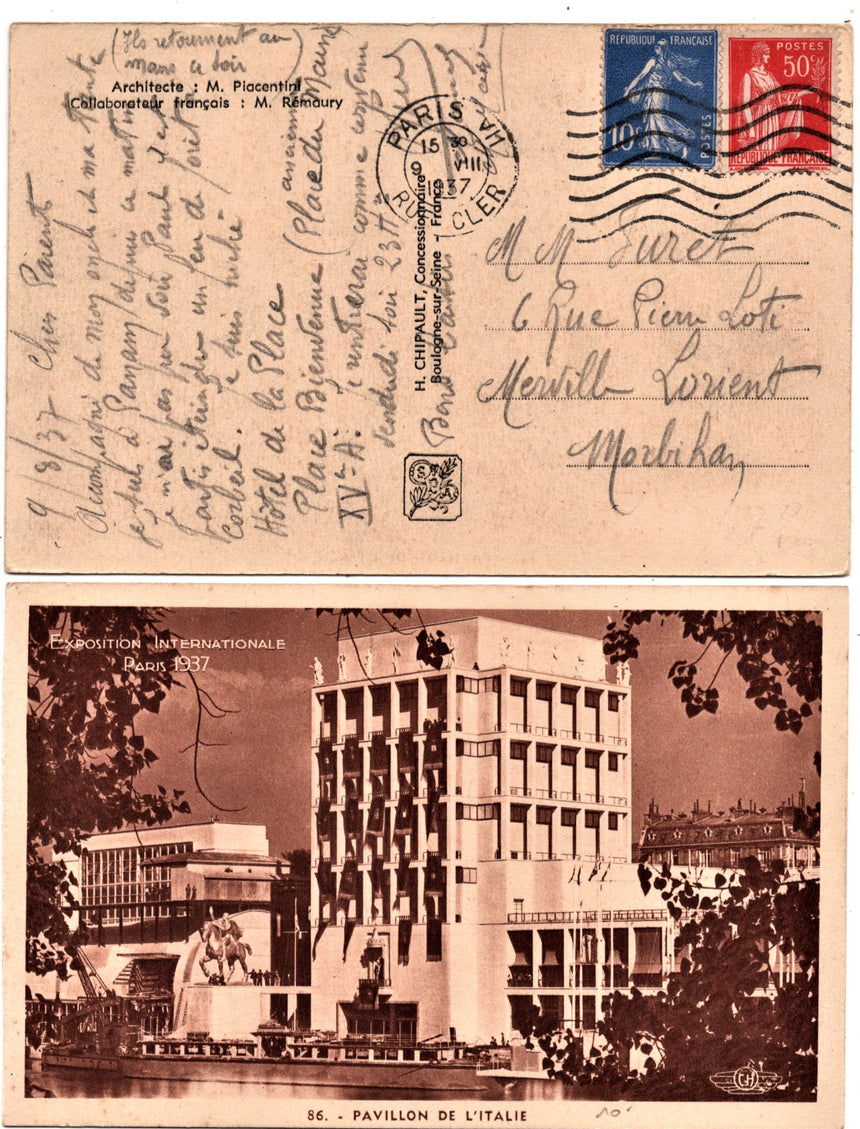 (Ils retournent au
mans ce soir)
Architecte : M. Piacentini
Collaborateur français : M. Rémaury
9/8/37 Cher Parents
Accompagné de mon oncle et ma tante
je suis à Panam depuis ce matin
je n'ai pas pu voir Paul il est
parti éteindre un feu de forêt
Corbeil. je suis niché
Hôtel de la Place
Place Bienvenue (Place du Maine
ancienne
XVe A: je rentrerai comme convenu
vendredi soir 23H
Bons baisers
H. CHIPAULT, Concessionnaire
Boulogne-sur-Seine - France
PARIS VII
15 30
9 VIII
1937
RUE CLER
RÉPUBLIQUE FRANÇAISE
10c
POSTES
POSTES
50c
RÉPUBLIQUE FRANÇAISE
M M Furet
6 Rue Pierre Loti
Merville Lorient
Morbihan
EXPOSITION INTERNATIONALE
PARIS 1937
CH
86. - PAVILLON DE L'ITALIE
10